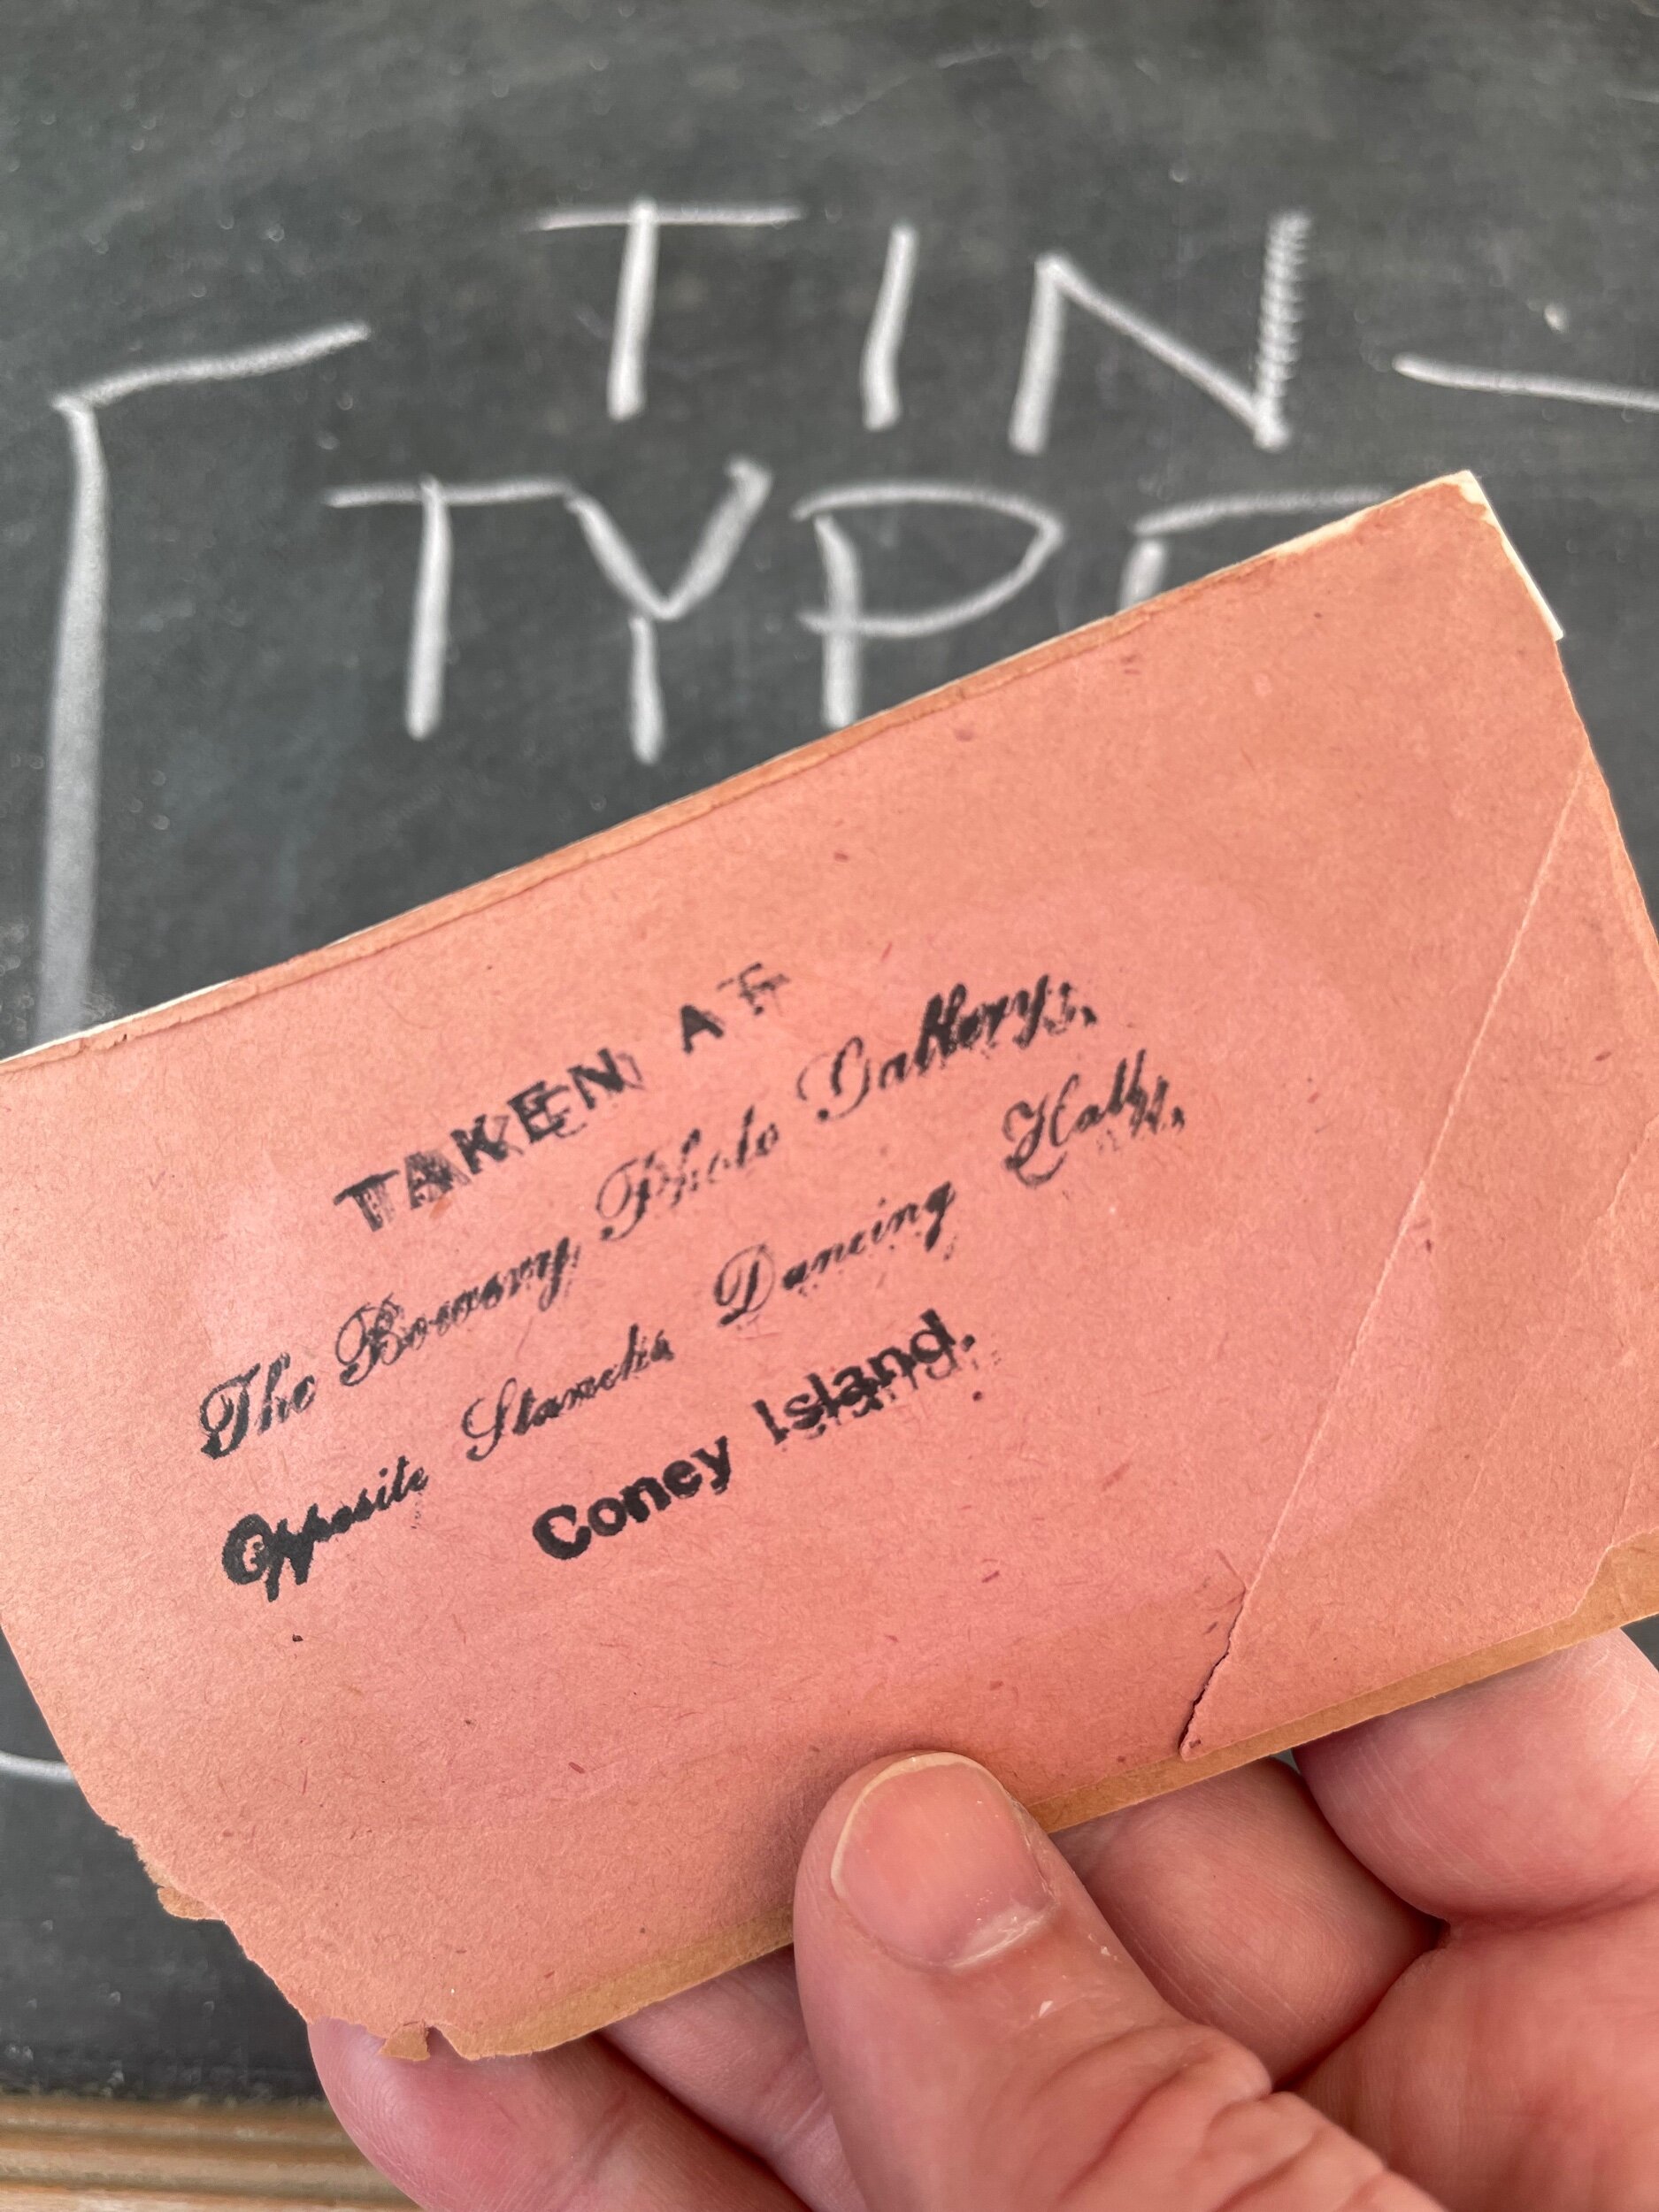 TIN
TYPE
TAKEN AT
The Bowery Photo Gallery,
Opposite Stauchs Dancing Hall,
Coney Island.